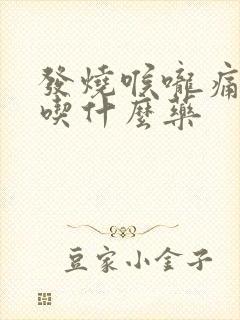 發燒喉嚨痛
喫什麼藥
豆家小金子